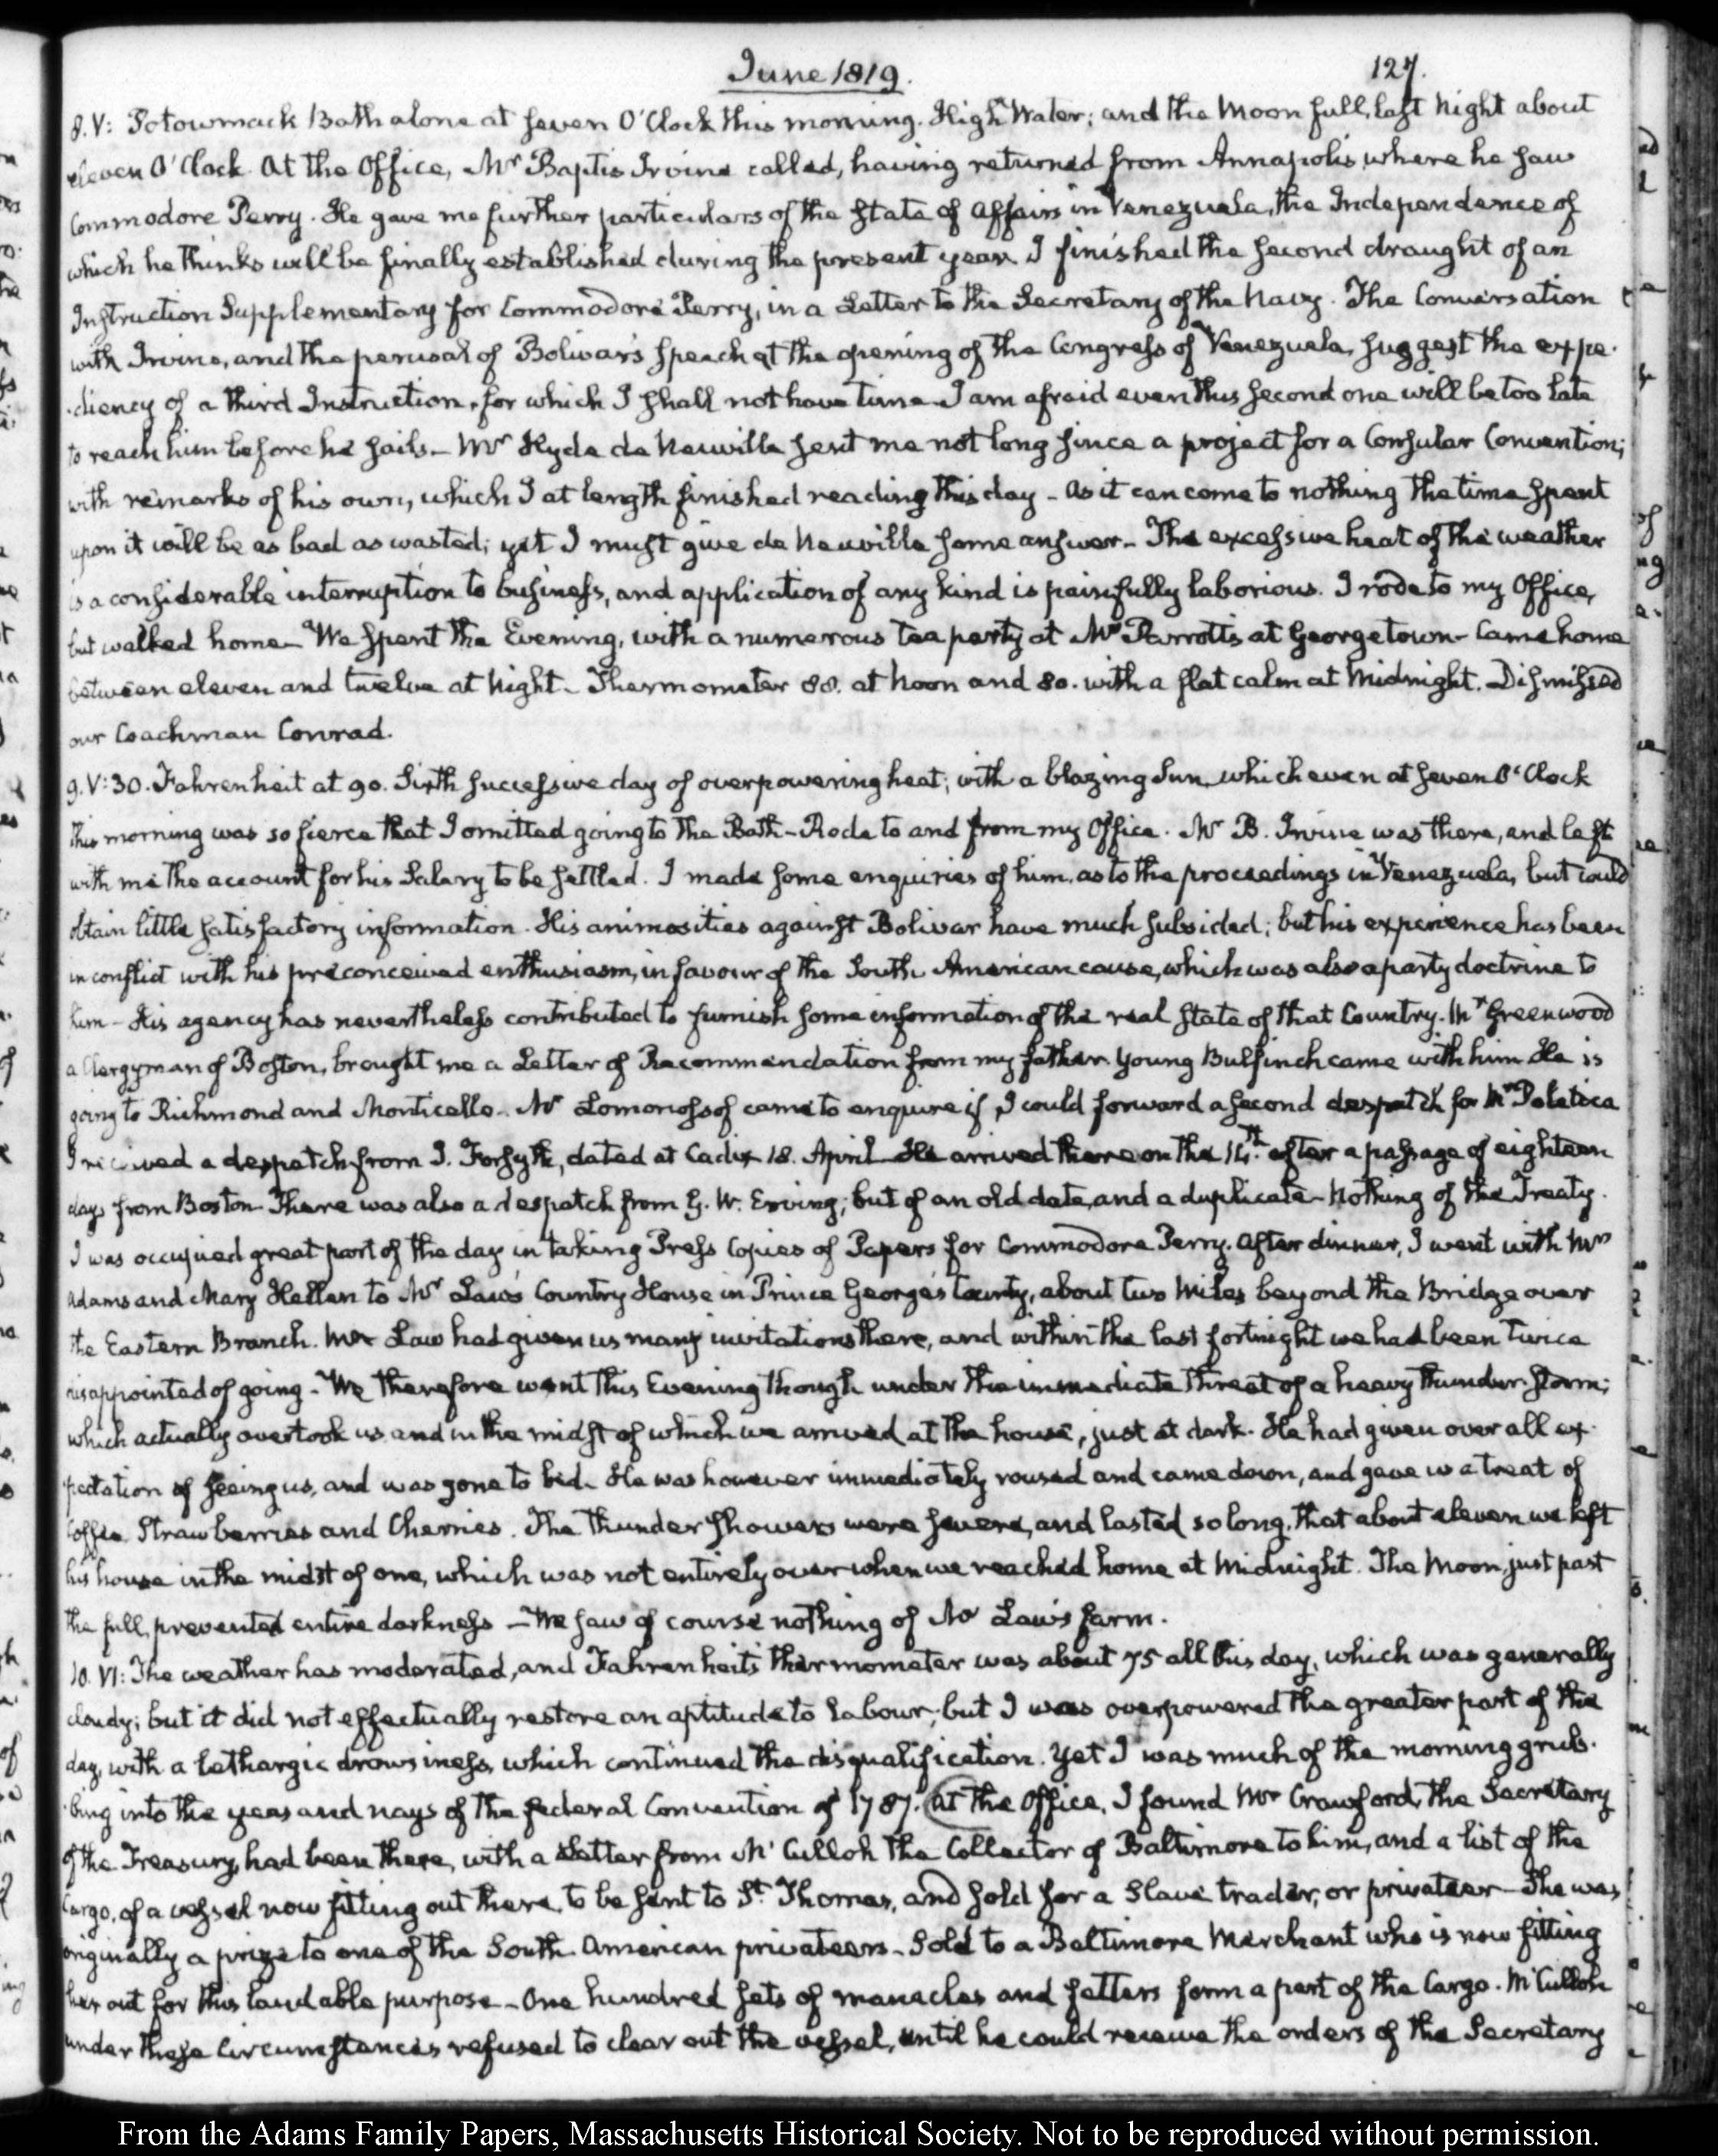 June 1819.
127.
8. V: Potowmack Bath alone at seven O'Clock this morning. High Water; and the Moon full, last Night about
eleven O'Clock. At the Office, Mr Baptis Irvine called, having returned from Annapolis, where he saw
Commodore Perry. He gave me further particulars of the State of Affairs in Venezuela, the Independence of
which he thinks will be finally established during the present year. I finished the second draught of an
Instruction Supplementary for Commodore Perry, in a Letter to the Secretary of the Navy. The Conversation
with Irvine, and the perusal of Bolivar's Speech at the opening of the Congress of Venezuela, suggest the expe-
-diency of a third Instruction, for which I shall not have time. I am afraid even this second one will be too late
to reach him before he sails - Mr Hyde de Neuville sent me not long since a project for a Consular Convention;
with remarks of his own, which I at length finished reading this day - As it can come to nothing the time spent
upon it will be as bad as wasted; yet I must give de Neuville some answer - The excessive heat of the weather
is a considerable interruption to business, and application of any kind is painfully laborious. I rode to my Office,
but walked home - We spent the Evening, with a numerous tea party at Mrs Parrott's at Georgetown - Came home
between eleven and twelve at Night - Thermometer 88. at Noon and 80. with a flat calm at Midnight. Dismissed
our Coachman Conrad.
9. V:30. Fahrenheit at 90. Sixth successive day of overpowering heat; with a blazing Sun, which even at seven O'Clock
this morning was so fierce that I omitted going to the Bath - Rode to and from my Office. Mr B. Irvine was there, and left
with me the account for his Salary to be settled. I made some enquiries of him, as to the proceedings in Venezuela, but could
obtain little satisfactory information. His animosities against Bolivar have much subsided; but his experience has been
in conflict with his preconceived enthusiasm, in favour of the South American cause, which was also a party doctrine to
him - His agency has nevertheless contributed to furnish some information of the real state of that Country. Mr Greenwood
a Clergyman of Boston, brought me a Letter of Recommendation from my father. Young Bulfinch came with him. He is
going to Richmond and Monticello - Mr Lomonossof came to enquire if I could forward a second despatch for Mr Poletica
I received a despatch from J. Forsyth, dated at Cadiz 18. April. He arrived there on the 14th. after a passage of eighteen
days from Boston. There was also a despatch from G. W. Erving; but of an old date, and a duplicate - Nothing of the Treaty.
I was occupied great part of the day in taking Press Copies of Papers for Commodore Perry. After dinner, I went with Mrs
Adams and Mary Hellen to Mr Law's Country House in Prince George's County, about two Miles beyond the Bridge over
the Eastern Branch. Mr Law had given us many invitations there, and within the last fortnight we had been twice
disappointed of going - We therefore went this Evening though under the immediate threat of a heavy thunder storm;
which actually overtook us, and in the midst of which we arrived at the house, just at dark. He had given over all ex-
pectation of seeing us, and was gone to bed. He was however immediately roused and came down, and gave us a treat of
Coffee Strawberries and Cherries. The thunder showers were severe, and lasted so long, that about eleven we left
his house in the midst of one, which was not entirely over when we reached home at Midnight. The Moon, just past
the full, prevented entire darkness - We saw of course nothing of Mr Law's farm.
10. VI: The weather has moderated, and Fahrenheit's thermometer was about 75 all this day, which was generally
cloudy; but it did not effectually restore an aptitude to labour; but I was overpowered the greater part of the
day, with a lethargic drowsiness, which continued the disqualification. Yet I was much of the morning grub-
-bing into the yeas and nays of the federal Convention of 1787. At the Office, I found Mr Crawford, the Secretary
of the Treasury, had been there, with a Letter from McCulloh the Collector of Baltimore to him, and a list of the
Cargo, of a vessel now fitting out there, to be sent to St. Thomas, and sold for a Slave trader, or privateer - She was
originally a prize to one of the South American privateers - Sold to a Baltimore Merchant who is now fitting
her out for this laudable purpose - One hundred sets of manacles and fetters form a part of the Cargo. McCulloh
under these circumstances refused to clear out the vessel, until he could receive the orders of the Secretary
From the Adams Family Papers, Massachusetts Historical Society. Not to be reproduced without permission.